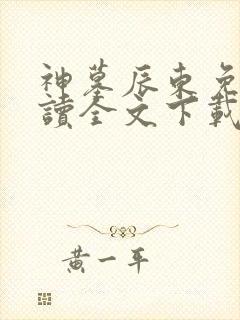 神墓辰東免
讀全文下載
黃一平